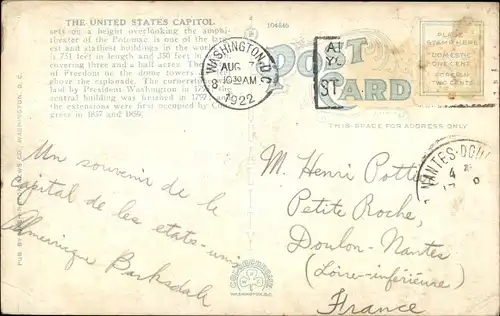 THE UNITED STATES CAPITOL.
sets on a height overlooking the amphi-
theater of the Potomac. Is one of the larg-
est and stateliest buildings in the world
is 751 feet in length and 350 feet in
covering three and a half acres. The
of Freedom on the dome towers
above the esplanade. The corners
laid by President Washington in 179
central building was finished in 1792
the extensions were first occupied by Con-
gress in 1857 and 1859.
104646
POST
CARD
WASHINGTON, D.C.
AUG 7
8 10 30 AM
1922
ST
PLACE
STAMP HERE
DOMESTIC
ONE CENT
FOREIGN
TWO CENTS
THIS SPACE FOR ADDRESS ONLY
NANTES-DOU
4
Un souvenir de le
capital de les etats-unis
Barksdale
M. Henri Pottie
Petite Roche,
Doulon-Nantes
(Loire-inférieure)
France
WASHINGTON, D.C.
WASHINGTON, D. C.